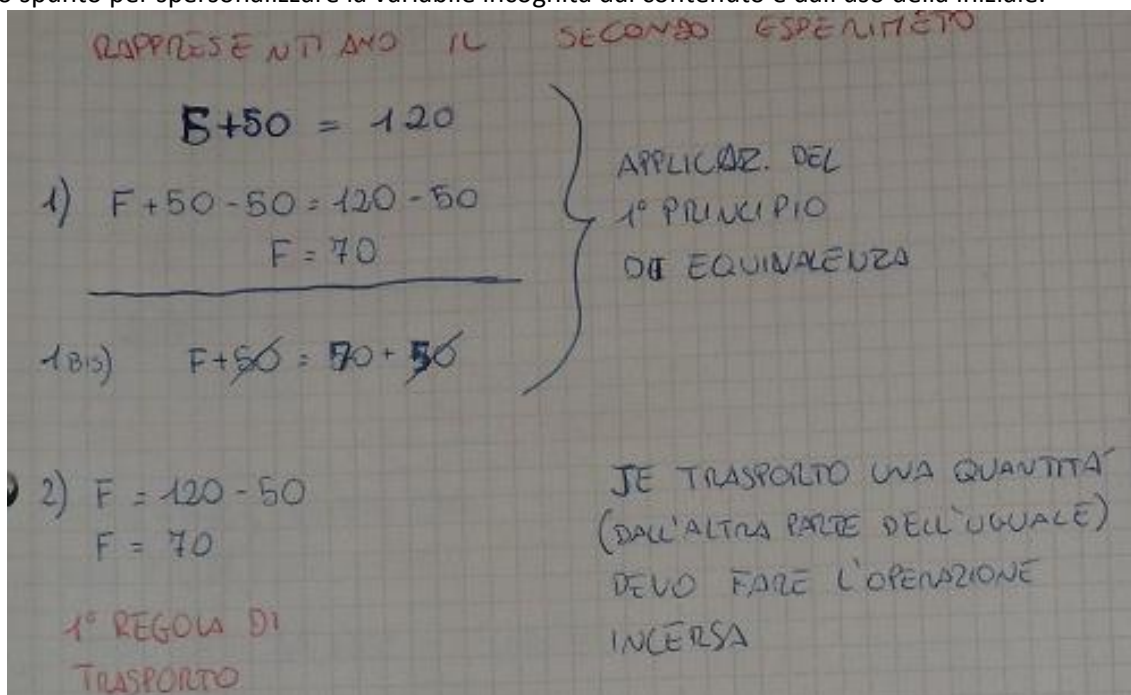 o spunto per spersonalizzare la variabile incognita dal contenuto e dall'uso della iniziale.
RAPPRESENTIAMO IL SECONDO ESPERIMETO
F+50 = 120
1) F+50-50=120-50
F = 70
APPLICAZ. DEL
1° PRINCIPIO
DI EQUIVALENZA
1BIS) F+50 = 70+50
2) F = 120-50
F = 70
SE TRASPORTO UNA QUANTITA'
(DALL'ALTRA PARTE DELL'UGUALE)
DEVO FARE L'OPERAZIONE
INVERSA
1° REGOLA DI
TRASPORTO